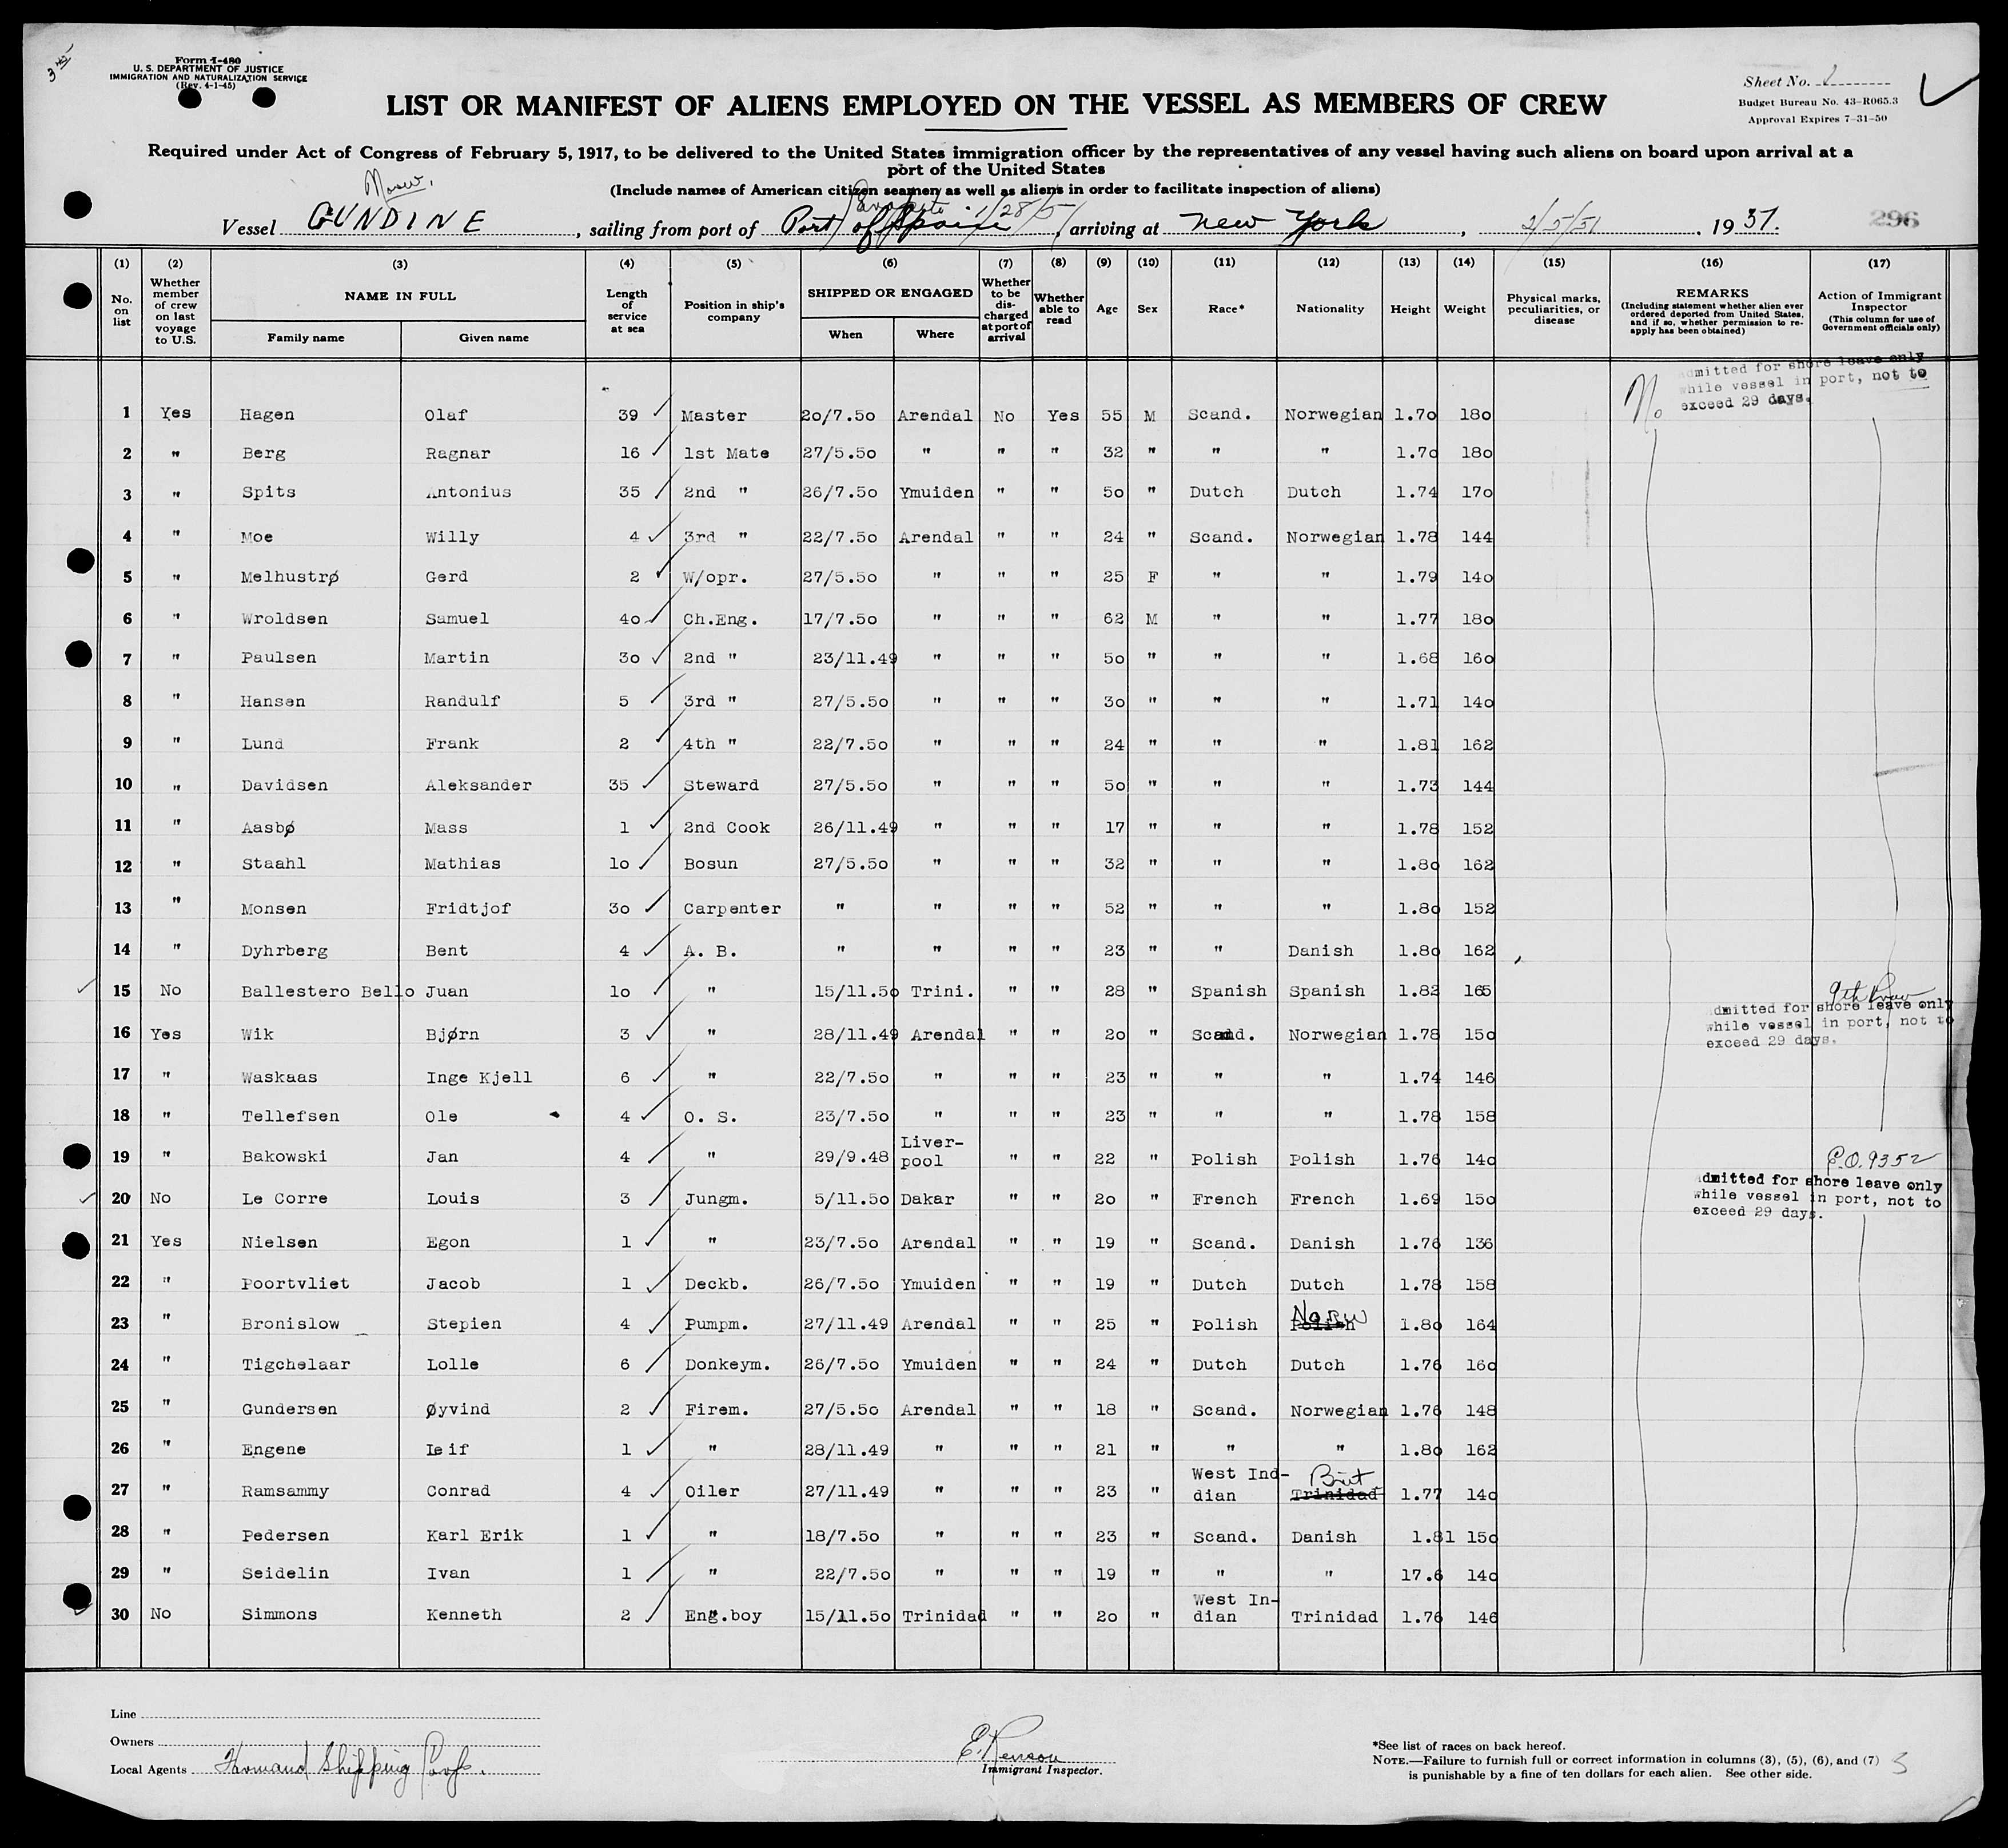 3rd
Form I-480
U. S. DEPARTMENT OF JUSTICE
IMMIGRATION AND NATURALIZATION SERVICE
(Rev. 4-1-45)
Sheet No.
Budget Bureau No. 43-R065.3
Approval Expires 7-31-50
LIST OR MANIFEST OF ALIENS EMPLOYED ON THE VESSEL AS MEMBERS OF CREW
Required under Act of Congress of February 5, 1917, to be delivered to the United States immigration officer by the representatives of any vessel having such aliens on board upon arrival at a
port of the United States
(Include names of American citizen seamen as well as aliens in order to facilitate inspection of aliens)
Vessel GUNDINE, sailing from port of Port of Spain 1/28/51, arriving at New York, 2/5/51, 1951. 296
(1) (2) (3) (4) (5) (6) (7) (8) (9) (10) (11) (12) (13) (14) (15) (16) (17)
No. on list
Whether member of crew on last voyage to U.S.
NAME IN FULL
Family name Given name
Length of service at sea
Position in ship's company
SHIPPED OR ENGAGED
When Where
Whether to be discharged at port of arrival
Whether able to read
Age Sex Race* Nationality Height Weight
Physical marks, peculiarities, or disease
REMARKS
(Including statement whether alien ever ordered deported from United States, and if so, whether permission to reapply has been obtained)
Action of Immigrant Inspector
(This column for use of Government officials only)
No
admitted for shore leave only
while vessel in port, not to
exceed 29 days.
1 Yes Hagen Olaf 39 Master 20/7.50 Arendal No Yes 55 M Scand. Norwegian 1.70 180
2 " Berg Ragnar 16 1st Mate 27/5.50 " " " 32 " " " 1.70 180
3 " Spits Antonius 35 2nd " 26/7.50 Ymuiden " " 50 " Dutch Dutch 1.74 170
4 " Moe Willy 4 3rd " 22/7.50 Arendal " " 24 " Scand. Norwegian 1.78 144
5 " Melhustrø Gerd 2 W/opr. 27/5.50 " " " 25 F " " 1.79 140
6 " Wroldsen Samuel 40 Ch.Eng. 17/7.50 " " " 62 M " " 1.77 180
7 " Paulsen Martin 30 2nd " 23/11.49 " " " 50 " " " 1.68 160
8 " Hansen Randulf 5 3rd " 27/5.50 " " " 30 " " " 1.71 140
9 " Lund Frank 2 4th " 22/7.50 " " " 24 " " " 1.81 162
10 " Davidsen Aleksander 35 Steward 27/5.50 " " " 50 " " " 1.73 144
11 " Aasbø Mass 1 2nd Cook 26/11.49 " " " 17 " " " 1.78 152
12 " Staahl Mathias 10 Bosun 27/5.50 " " " 32 " " " 1.80 162
13 " Monsen Fridtjof 30 Carpenter " " " " 52 " " " 1.80 152
14 " Dyhrberg Bent 4 A. B. " " " " 23 " " Danish 1.80 162
15 No Ballestero Bello Juan 10 " 15/11.50 Trini. " " 28 " Spanish Spanish 1.82 165 9th Prov
admitted for shore leave only
while vessel in port, not to
exceed 29 days.
16 Yes Wik Bjørn 3 " 28/11.49 Arendal " " 20 " Scand. Norwegian 1.78 150
17 " Waskaas Inge Kjell 6 " 22/7.50 " " " 23 " " " 1.74 146
18 " Tellefsen Ole 4 O. S. 23/7.50 " " " 23 " " " 1.78 158
19 " Bakowski Jan 4 " 29/9.48 Liver-pool " " 22 " Polish Polish 1.76 140 E.O. 9352
admitted for shore leave only
while vessel in port, not to
exceed 29 days.
20 No Le Corre Louis 3 Jungm. 5/11.50 Dakar " " 20 " French French 1.69 150
21 Yes Nielsen Egon 1 " 23/7.50 Arendal " " 19 " Scand. Danish 1.76 136
22 " Poortvliet Jacob 1 Deckb. 26/7.50 Ymuiden " " 19 " Dutch Dutch 1.78 158
23 " Bronislow Stepien 4 Pumpm. 27/11.49 Arendal " " 25 " Polish Polish Norw 1.80 164
24 " Tigchelaar Lolle 6 Donkeym. 26/7.50 Ymuiden " " 24 " Dutch Dutch 1.76 160
25 " Gundersen Øyvind 2 Firem. 27/5.50 Arendal " " 18 " Scand. Norwegian 1.76 148
26 " Engene Leif 1 " 28/11.49 " " " 21 " " " 1.80 162
27 " Ramsammy Conrad 4 Oiler 27/11.49 " " " 23 " West Ind-dian Trinidad Brit 1.77 140
28 " Pedersen Karl Erik 1 " 18/7.50 " " " 23 " Scand. Danish 1.81 150
29 " Seidelin Ivan 1 " 22/7.50 " " " 19 " " " 17.6 140
30 No Simmons Kenneth 2 Eng.boy 15/11.50 Trinidad " " 20 " West In-dian Trinidad 1.76 146
Line
Owners
Local Agents Shipping Corp.
E. Renson
Immigrant Inspector.
*See list of races on back hereof.
NOTE.—Failure to furnish full or correct information in columns (3), (5), (6), and (7)
is punishable by a fine of ten dollars for each alien. See other side.
3